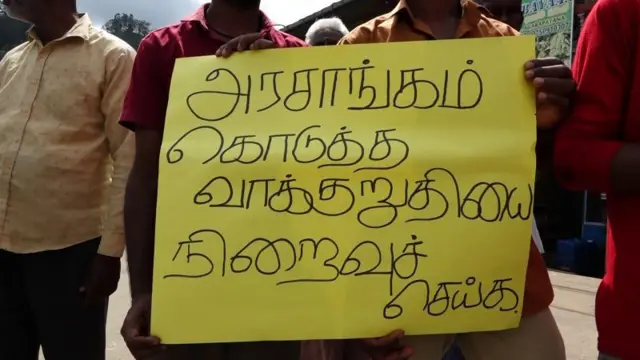 அரசாங்கம்
கொடுத்த
வாக்குறுதியை
நிறைவுச்
செய்க.